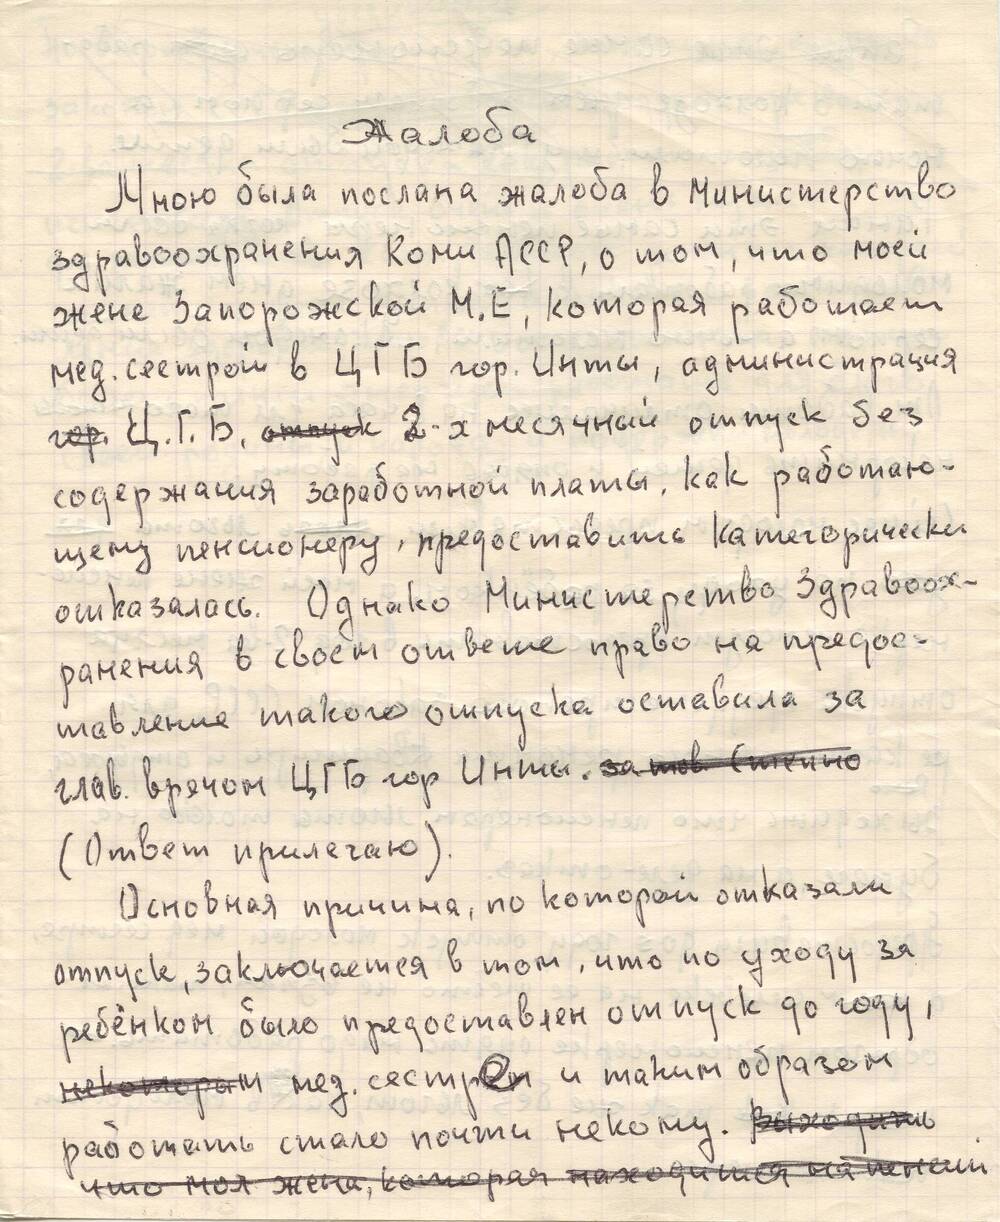 Жалоба
Мною была послана жалоба в Министерство
здравоохранения Коми АССР, о том, что моей
жене Запорожской М.Е, которая работает
мед. сестрой в ЦГБ гор. Инты, администрация
гор. Ц.Г.Б, отпуск 2-х месячный отпуск без
содержания заработной платы, как работаю-
щему пенсионеру, предоставить категорически
отказалась. Однако Министерство Здравоох-
ранения в своем ответе право на предос-
тавление такого отпуска оставила за
глав. врачом ЦГБ гор Инты. за тов.
(Ответ прилагаю).
Основная причина, по которой отказали
отпуск, заключается в том, что по уходу за
ребёнком было предоставлен отпуск до году,
некоторым мед. сестрам и таким образом
работать стало почти некому. Выходить
что моя жена, которая находится на пенсии